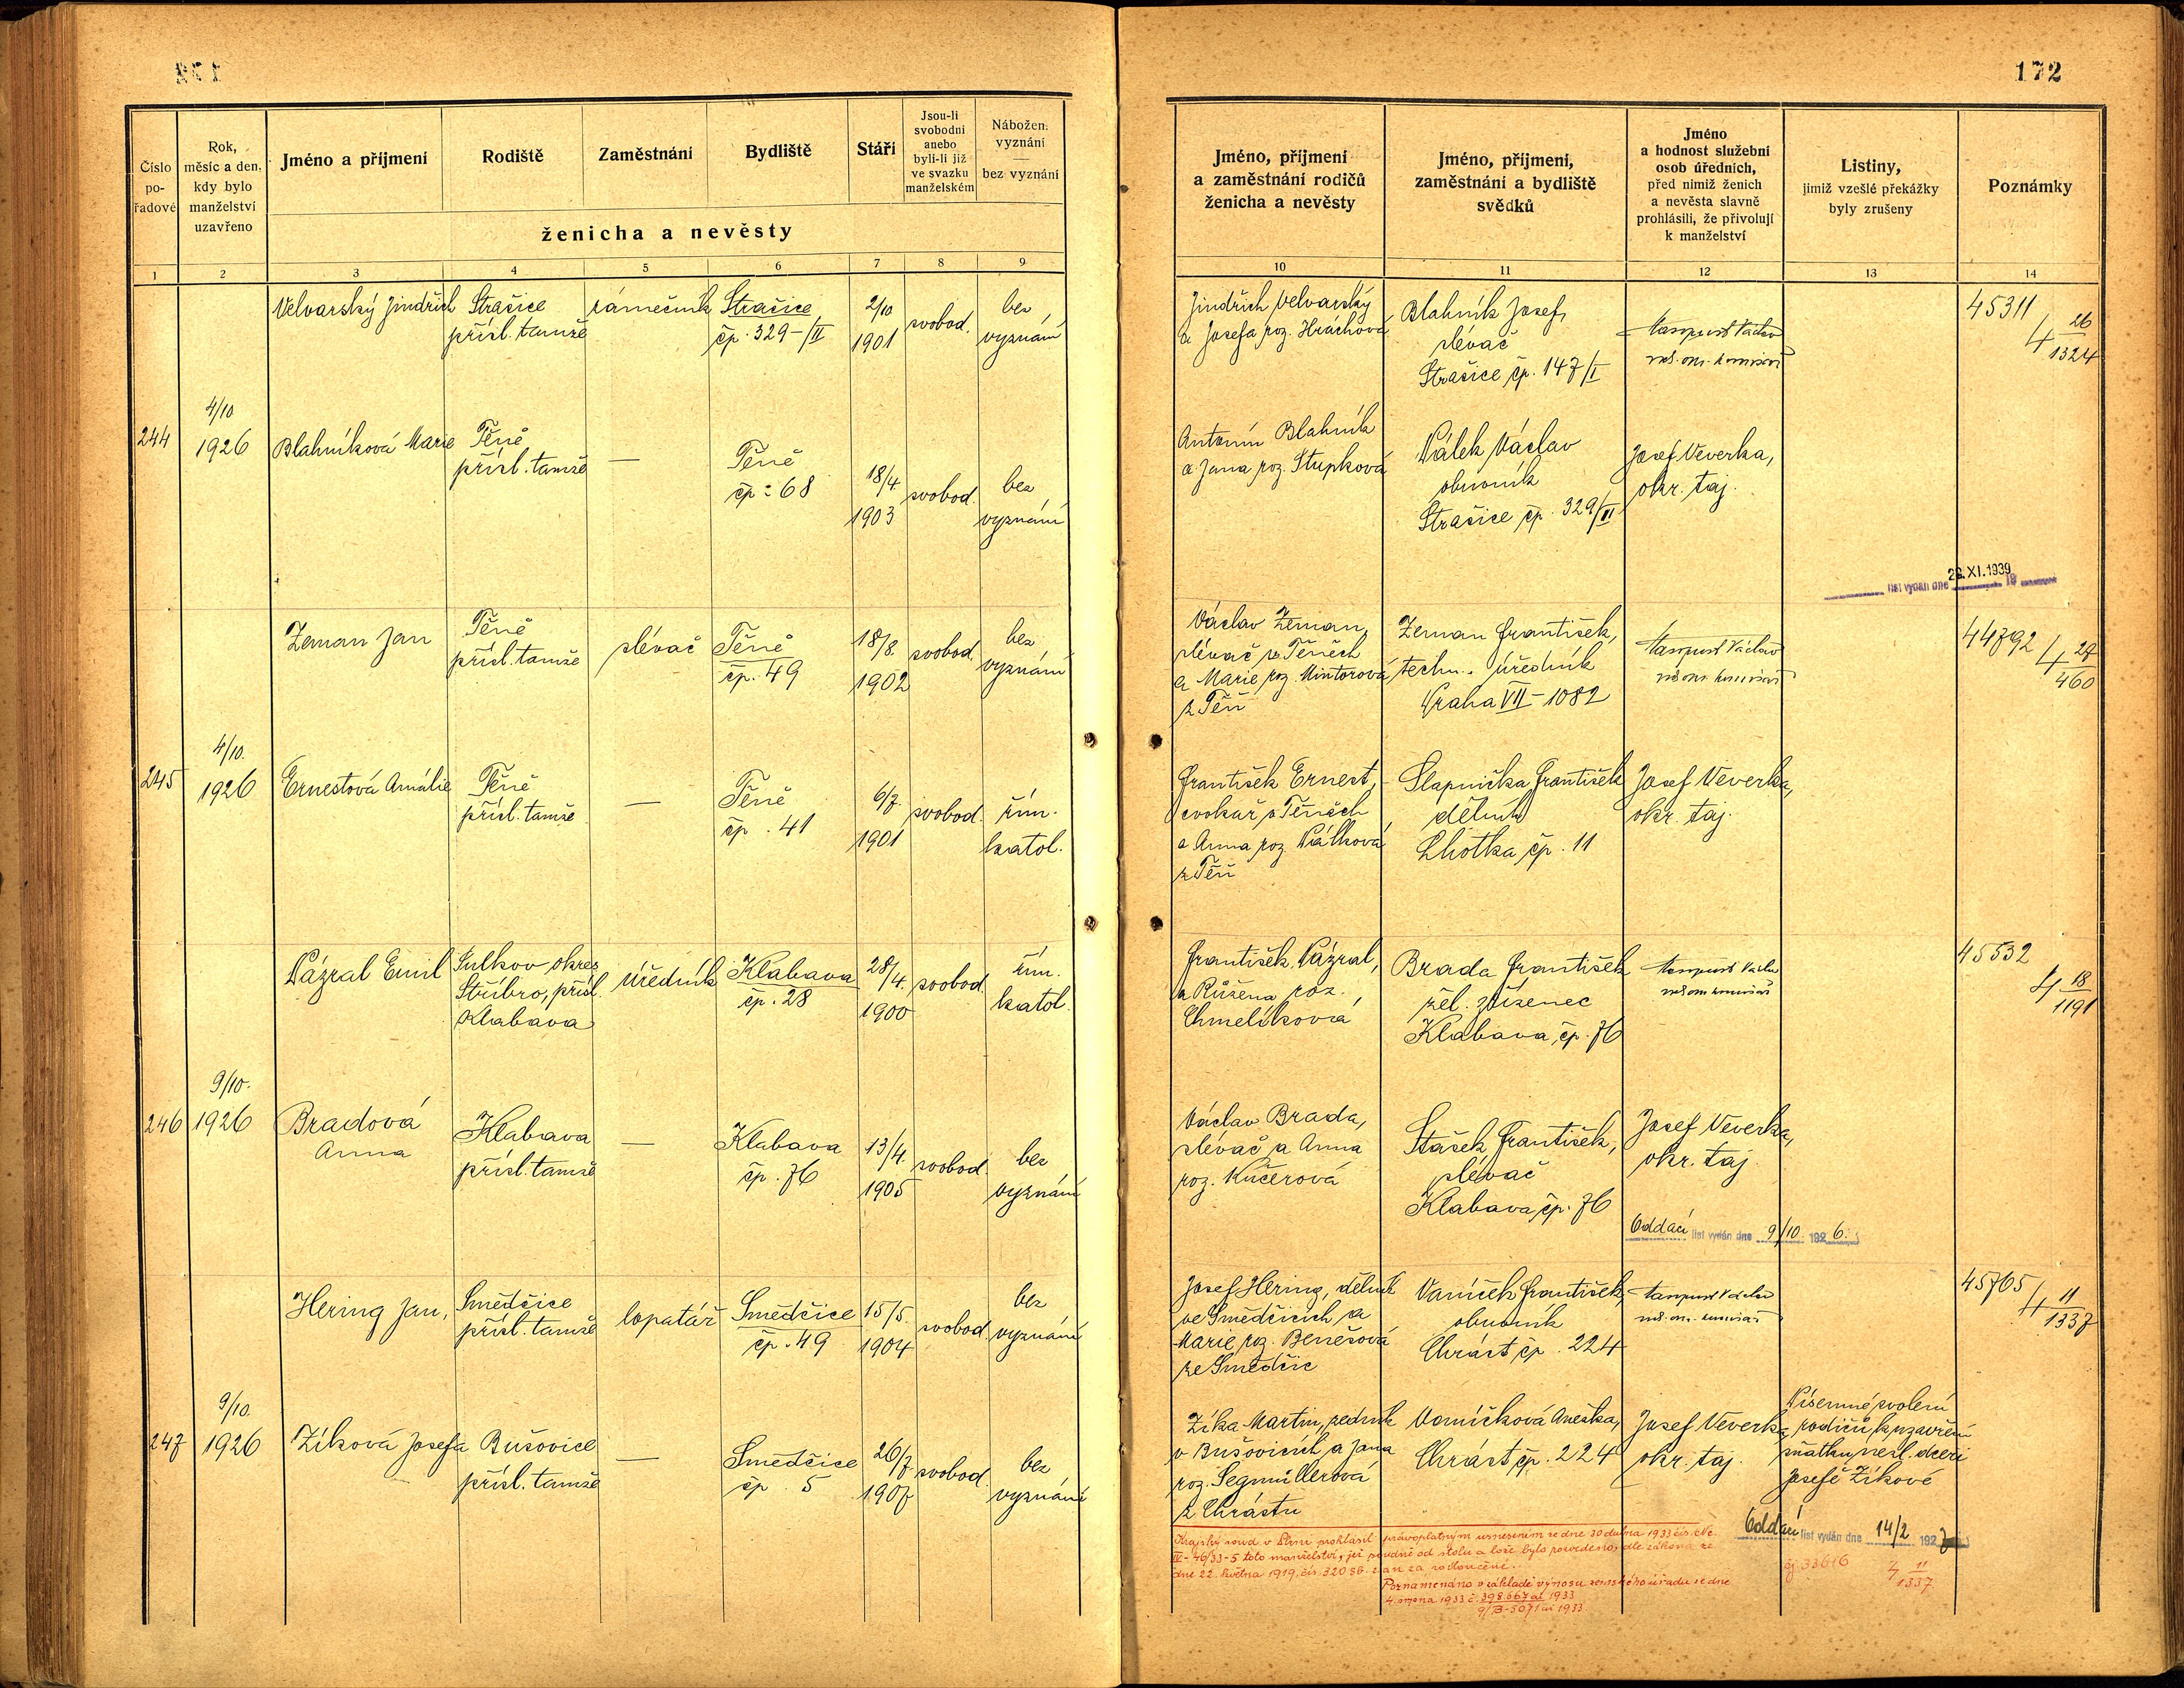 172
Číslo pořadové
Rok, měsíc a den, kdy bylo manželství uzavřeno
Jméno a příjmení
Rodiště
Zaměstnání
Bydliště
Stáří
Jsou-li svobodni anebo byli-li již ve svazku manželském
Nábožen. vyznání — bez vyznání
ženicha a nevěsty
1 2 3 4 5 6 7 8 9
Jméno, příjmení a zaměstnání rodičů ženicha a nevěsty
Jméno, příjmení, zaměstnání a bydliště svědků
Jméno a hodnost služební osob úředních, před nimiž ženich a nevěsta slavně prohlásili, že přivolují k manželství
Listiny, jimiž vzešlé překážky byly zrušeny
Poznámky
10 11 12 13 14
Velvarský Jindřich
Strašice
přísl. tamže
zámečník
Strašice
čp. 329-/II
2/10
1901
svobod.
bez
vyznání
Jindřich Velvarský
a Josefa roz. Hráchová
Blahník Josef,
slévač
Strašice čp. 147/I
45311
4 26/1324
244
4/10
1926
Blahníková Marie
Těně
přísl. tamže
—
Těně
čp: 68
18/4
1903
svobod.
bez
vyznání
Antonín Blahník
a Jana roz. Stupková
Válek Václav
obuvník
Strašice čp. 329/II
Josef Veverka,
okr. taj.
list vydán dne 26. XI. 1939
Zeman Jan
Těně
přísl. tamže
slévač
Těně
čp. 49
18/8.
1902
svobod.
bez
vyznání
Václav Zeman,
slévač v Těních
a Marie roz. Mintorová
z Těň
Zeman František,
techn. úředník
Praha VII - 1082
44792
4 27/460
245
4/10.
1926
Ernestová Amálie
Těně
přísl. tamže
—
Těně
čp. 41
6/7.
1901
svobod.
řím.
katol.
František Ernest,
cvokař v Těních
a Anna roz. Válková
z Těň
Slapnička František
dělník
Lhotka čp. 11
Josef Veverka,
okr. taj.
Vázral Emil
Sulkov okres
Stříbro, přísl.
Klabava
úředník
Klabava
čp. 28
28/4.
1900
svobod.
řím.
katol.
František Vázral,
a Růžena roz.
Chmelíková
Brada František
žel. zřízenec
Klabava, čp. 76
45532
4 18/1191
246
9/10.
1926
Bradová
Anna
Klabava
přísl. tamže
—
Klabava
čp. 76
13/4.
1905
svobod.
bez
vyznání
Václav Brada,
slévač a Anna
roz. Kučerová
Stašek František,
slévač
Klabava, čp. 76
Josef Veverka,
okr. taj.
Oddací list vydán dne 9/10. 1926.
Hering Jan,
Smědčice
přísl. tamže
lopatář
Smědčice
čp. 49
15/5.
1904
svobod.
bez
vyznání
Josef Hering, dělník
ve Smědčicích a
Marie roz. Benešová
ze Smědčic
Vaníček František,
obuvník
Chrást čp. 224
45765
4 11/1337
247
9/10.
1926
Zíková Josefa
Bušovice
přísl. tamže
—
Smědčice
čp. 5
26/7
1907
svobod.
bez
vyznání
Zíka Martin, zedník
v Bušovicích a Jana
roz. Segmüllerová
z Chrástu
Vaníčková Anežka,
Chrást čp. 224
Josef Veverka
okr. taj.
Písemné svolení
rodičů k uzavření
sňatku nezl. dceři
Josefě Zíkové
Oddací list vydán dne 14/2 1927
Krajský soud v Plzni prohlásil právoplatným usnesením ze dne 30 dubna 1933 čís. Nc
IV-46/33-5 toto manželství, jež soudně od stolu a lože bylo rozvedeno, dle zákona ze
dne 22. května 1919, čís. 320 Sb. z. a n. za rozloučené.
Poznamenáno v základě výnosu zemského úřadu ze dne
4. srpna 1933 č. 398.667 ai 1933
9/B-5071 ai 1933
čj. 33616
4 11/1337